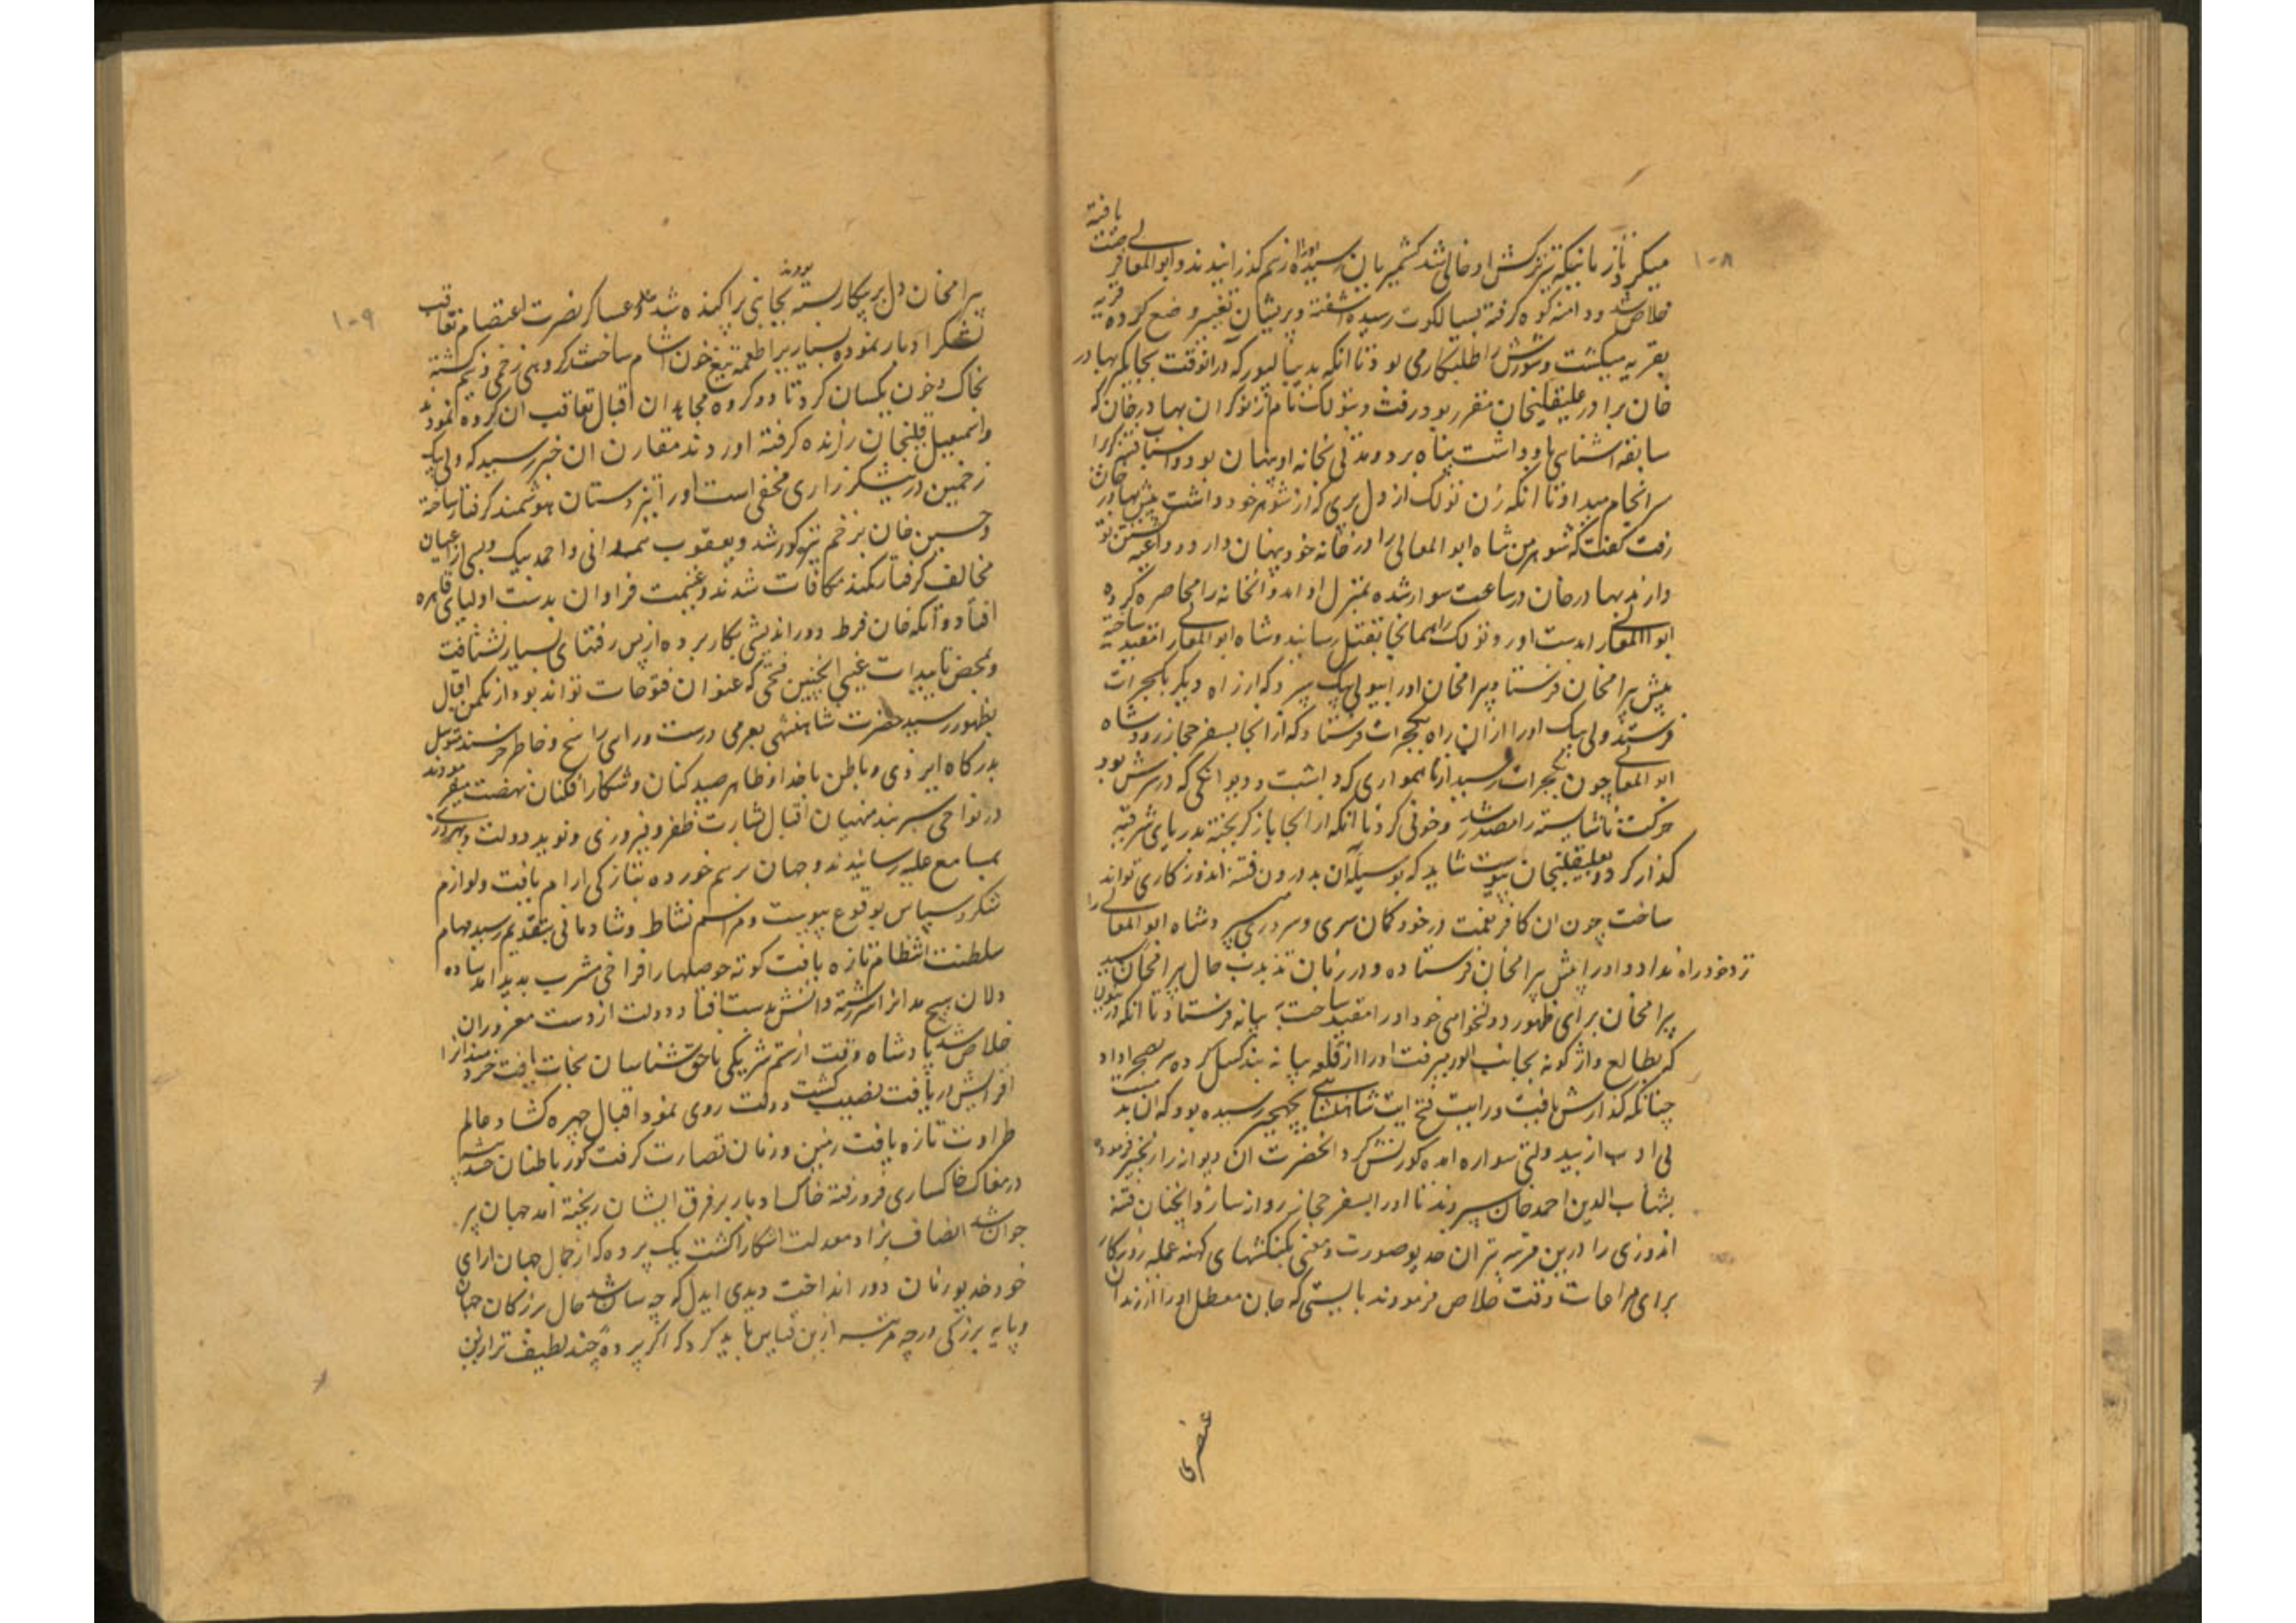 ۱۰۸
میکرد تا زمانیکه تیر ترکش او خالی شد کشمیریان رسیده او را از هم گذرانیدند و ابو المعالی فرصت یافته
خلاص شد و دامنه کوه گرفته بسیالکوت رسیده آشفته و پریشان تغییر وضع کرده قریه
بقریه میکشت و شورش را طلبکار می بود تا آنکه بدیبالپور که در آنوقت بجایگیر بهادر
خان برادر علیقلیخان مقرر بود رفت و تولک نام از نوکران بهادر خان که
سابقه آشنایی باو داشت پناه برد و مدتی بخانه او پنهان بود و اسباب فتنه گری را
سرانجام میداد تا آنکه زن تولک از دل پری که از شوهر خود داشت پیش بهادر خان
رفت گفت که شوهر من شاه ابو المعالی را در خانه خود پنهان دارد و داعیه کشتن تو
دارند بهادر خان در ساعت سوار شده بمنزل او آمد و آنخانه را محاصره کرده
ابو المعالی را بدست اورد و تولک را همانجا بقتل رسانید و شاه ابو المعالی را مقید ساخته
پیش بیرامخان فرستاد و بیرامخان او را بولی بیک سپرد که از راه دیگر بکجرات
فرستند ولی بیک او را از ان راه بکجرات فرستاد که از انجا بسفر حجاز رود شاه
ابو المعالی چون بکجرات رسید از ناهمواری که داشت و دیوانگی که در سرش بود
حرکت ناشایسته را مصدر شد و خونی کرد تا آنکه از انجا باز کریخته بدریای شرقیه
گذار کرد و بعلیقلیخان پیوست شاید که بوسیله آن بدرون فتنه اندوز کاری تواند
ساخت چون ان کافر نعمت در خود گمان سری و سروری میبرد شاه ابو المعالی را
نزد خود راه نداد و او را پیش بیرامخان فرستاده و در زمان تذبذب حال بیرامخان رسید
بیرامخان برای ظهور دولتخواهی خود او را مقید ساخت به بیانه فرستاد تا آنکه در
که بطالع واژگونه بجانب الور میرفت او را از قلعه بیانه بند گسل کرده سر بصحرا داد
چنانکه گذارش یافت و رایت فتح آیت شاهنشاهی بجهجر رسیده بود که ان بد مست
بی ادب از بیدولتی سواره آمده کورنش کرد آنحضرت ان دیوانه را زنجیر فرموده
بشهاب الدین احمد خان سپردند تا او را بسفر حجاز روانه سازد و اینچنان فتنه
اندوزی را درین مرتبه بتر ان خدیو صورت و معنی بکنکشهای کهنه عمله روزگار
برای مراعات وقت خلاص فرمودند بایستی که جان معطل او را از زندان
عنصری
۱۰۹
بیرامخان دل بر پیکار بسته بودند بجانبی پراکنده شد و عساکر نصرت اعتصام تعاقب
لشکر ادبار نموده بسیاریرا طعمه تیغ خون آشام ساخت گروهی زخمی و نیم کشته
بخاک و خون یکسان کرد تا دو کروه مجاهدان اقبال تعاقب ان گروه نمودند
و اسمعیل قلیخان را زنده گرفته اوردند مقارن ان خبر رسید که ولی بیک
زخمین در نیشکر زاری مخفی است او را نیز دستان هوشمند گرفتار ساخته
و حسین خان بزخم تیر کور شد و یعقوب همدانی و احمد بیک و بسی از اعیان
مخالف گرفتار کمند مکافات شدند و غنیمت فراوان بدست اولیای قاهره
افتاد و آنکه خان فرط دوراندیشی بکار برده از پس رفتهای بسیار نشتافت
و بمحض تاییدات غیبی اینچنین فتحی که عنوان فتوحات تواند بود از مکمن اقبال
بظهور رسید حضرت شاهنشهی بعزمی درست و رای راسخ و خاطر خرسند توسل
بدرگاه ایزدی و باطن باخدا و ظاهر صید کنان و شکار افکنان نهضت میفرمودند
در نواحی سرهند منهیان اقبال بشارت ظفر و فیروزی و نوید دولت و بهروزی
بمسامع علیه رسانیدند و جهان برهم خورده بتازگی ارام یافت و لوازم
شکر و سپاس بوقوع پیوست و مراسم نشاط و شادمانی بتقدیم رسید مهام
سلطنت انتظام تازه یافت کوته حوصلها را فراخی مشرب پدید امد ساده
دلان هیچ مدانرا سررشته دانش بدست افتاد دولت از دست مغروران
خلاص شد پادشاه وقت از ستم شریکی ناحق شناسان نجات یافت خردمندانرا
افزایش دریافت نصیب کشت دولت روی نمود اقبال چهره کشاد عالم
طراوت تازه یافت زمین و زمان نضارت گرفت کور باطنان
در مغاک خاکساری فرو رفته خاک ادبار بر فرق ایشان ریخته آمد جهان پر
جوان شد انصاف بزاد معدلت اشکارا کشت یک پرده که از جمال جهان ارای
خود خدیو زمان دور انداخت دیدی ایدل که چه سان شد حال بزرگان جهان
و پایه بزرگی در چه مرتبه ازین قیاس باید کرد که اگر پرده چند لطیف تر ازین